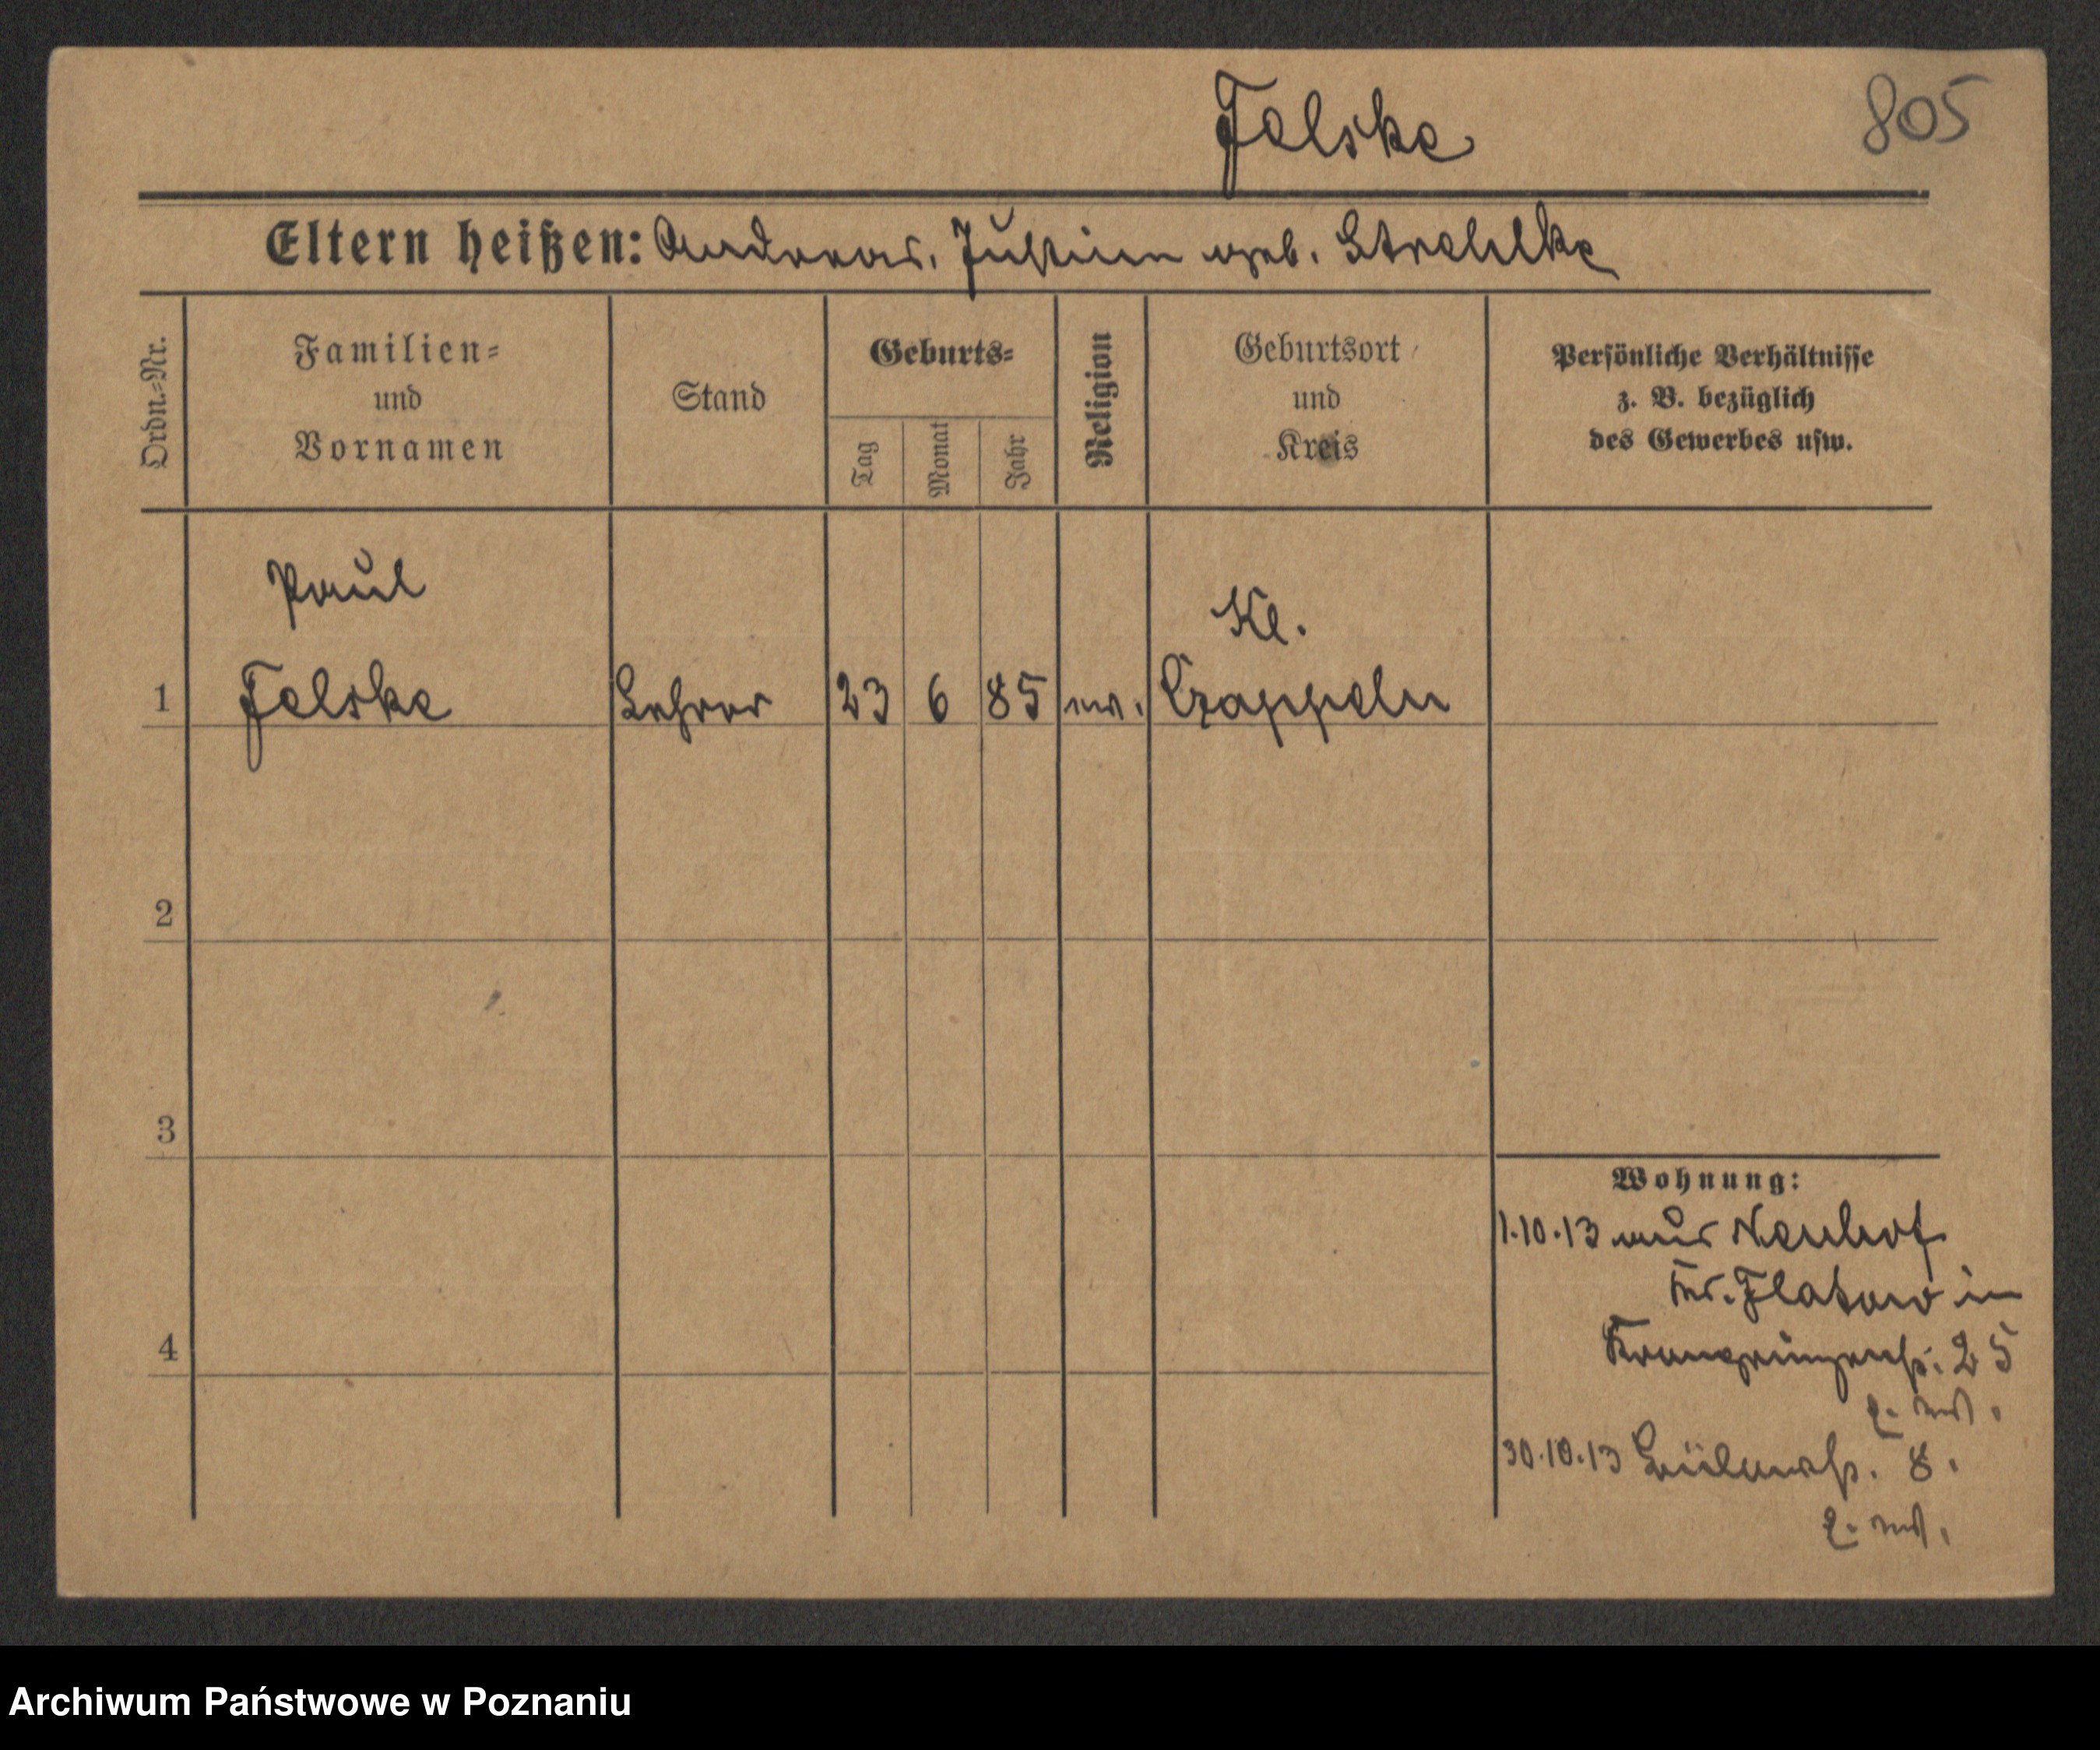 Felske
805
Eltern heißen: Andreas. Justine geb. Strehlke
Ordn.-Nr.
Familien-
und
Vornamen
Stand
Geburts-
Tag
Monat
Jahr
Religion
Geburtsort
und
Kreis
Persönliche Verhältnisse
z. B. bezüglich
des Gewerbes usw.
Paul
Kl.
1 Felske Lehrer 23 6 85 ev. Czappeln
2
3
4
Wohnung:
1.10.13 aus Neuhof
Kr. Flatow in
Kronprinzenst. 25
30.10.13 8.
Archiwum Państwowe w Poznaniu